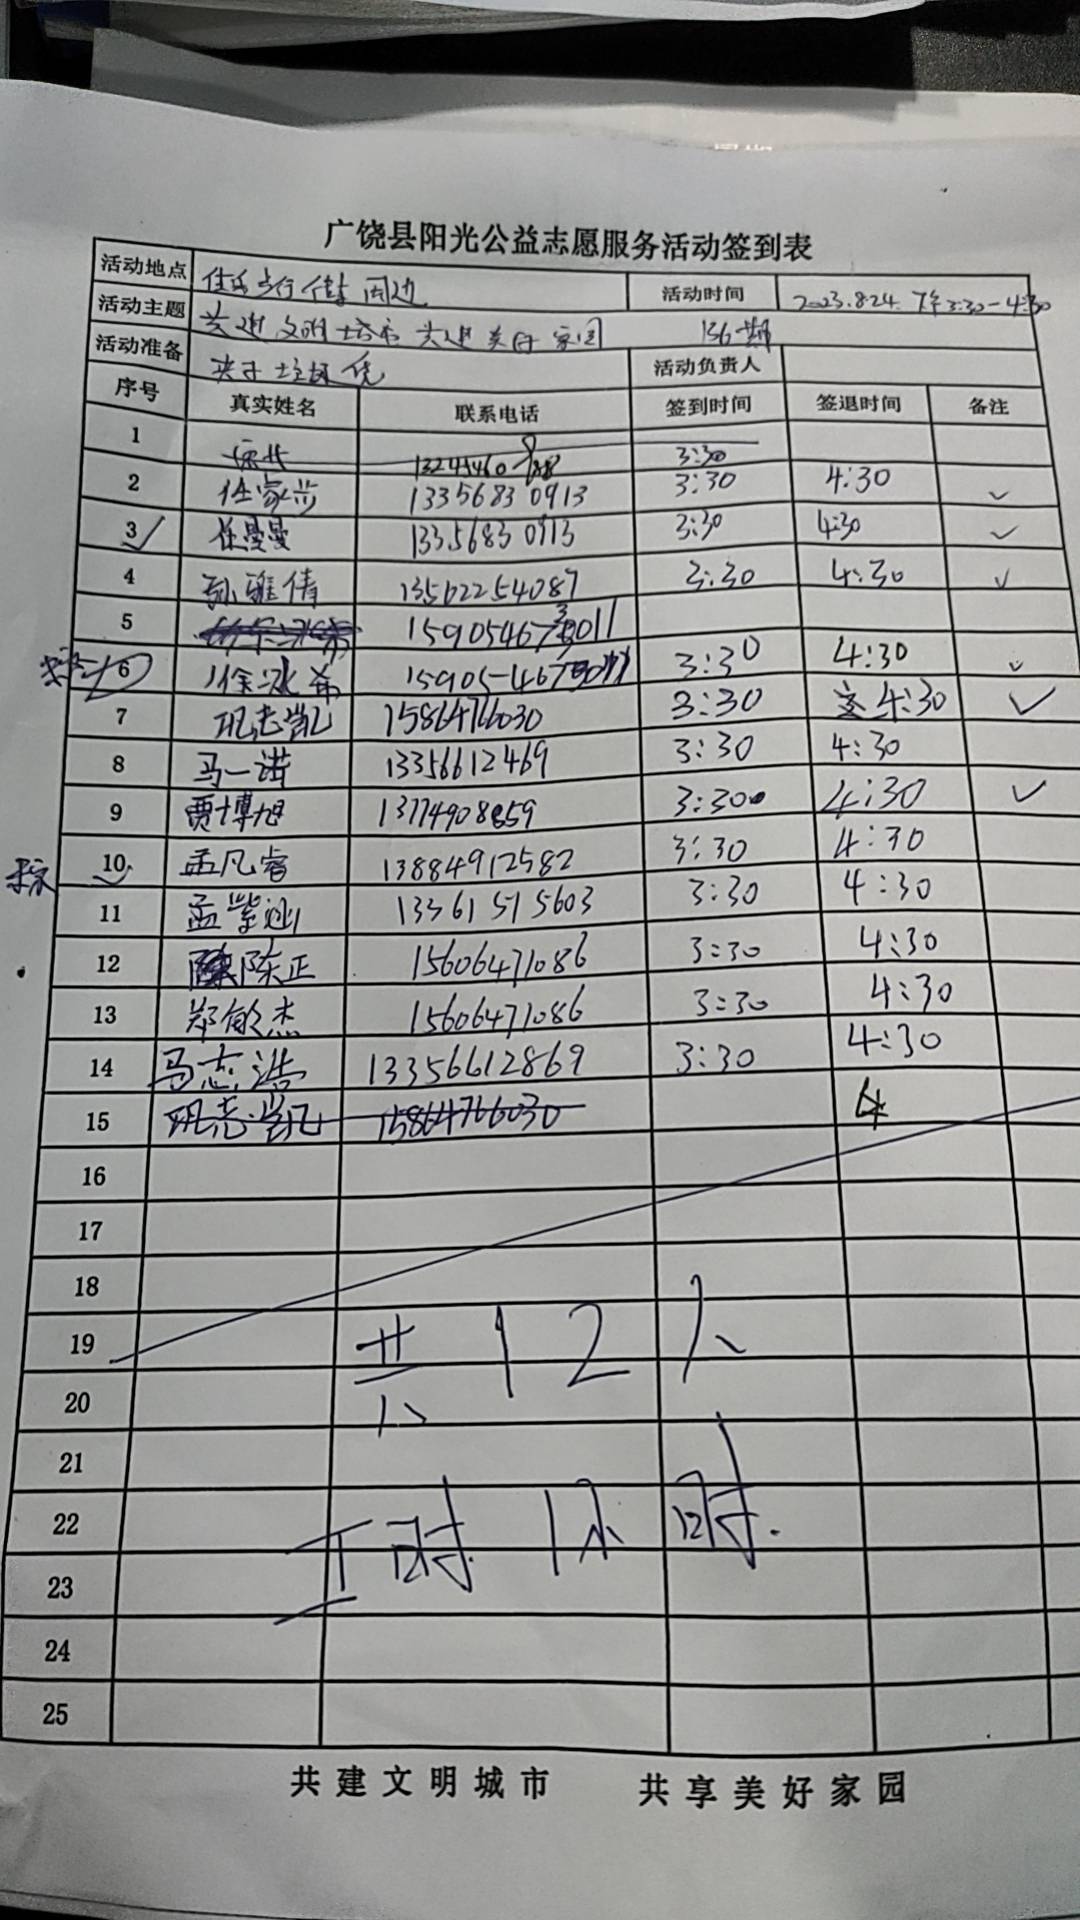 广饶县阳光公益志愿服务活动签到表
活动地点 周边 活动时间 2023.8.24. 下午3:30-4:30
活动主题 共建文明城市 共建美好家园 136期
活动准备 夹子 垃圾 活动负责人
序号 真实姓名 联系电话 签到时间 签退时间 备注
1 3:30
2 任家 13356830913 3:30 4:30 ✓
3 ✓ 任曼曼 13356830913 3:30 4:30 ✓
4 孙雅倩 13562254087 3:30 4:30 ✓
5
6 徐冰希 3:30 4:30 ✓
7 巩志凯 15864766030 3:30 4:30 ✓
8 马一诺 13356612469 3:30 4:30
9 贾博旭 13774908859 3:30 4:30 ✓
10 孟凡睿 13884912582 3:30 4:30
11 孟紫 13361515603 3:30 4:30
12 陈正 15606471086 3:30 4:30
13 郑敏杰 15606471086 3:30 4:30
14 马志浩 13356612869 3:30 4:30
15 巩志凯 15864766030
16
17
18
19 共12人
20
21
22 工时1小时.
23
24
25
共建文明城市 共享美好家园